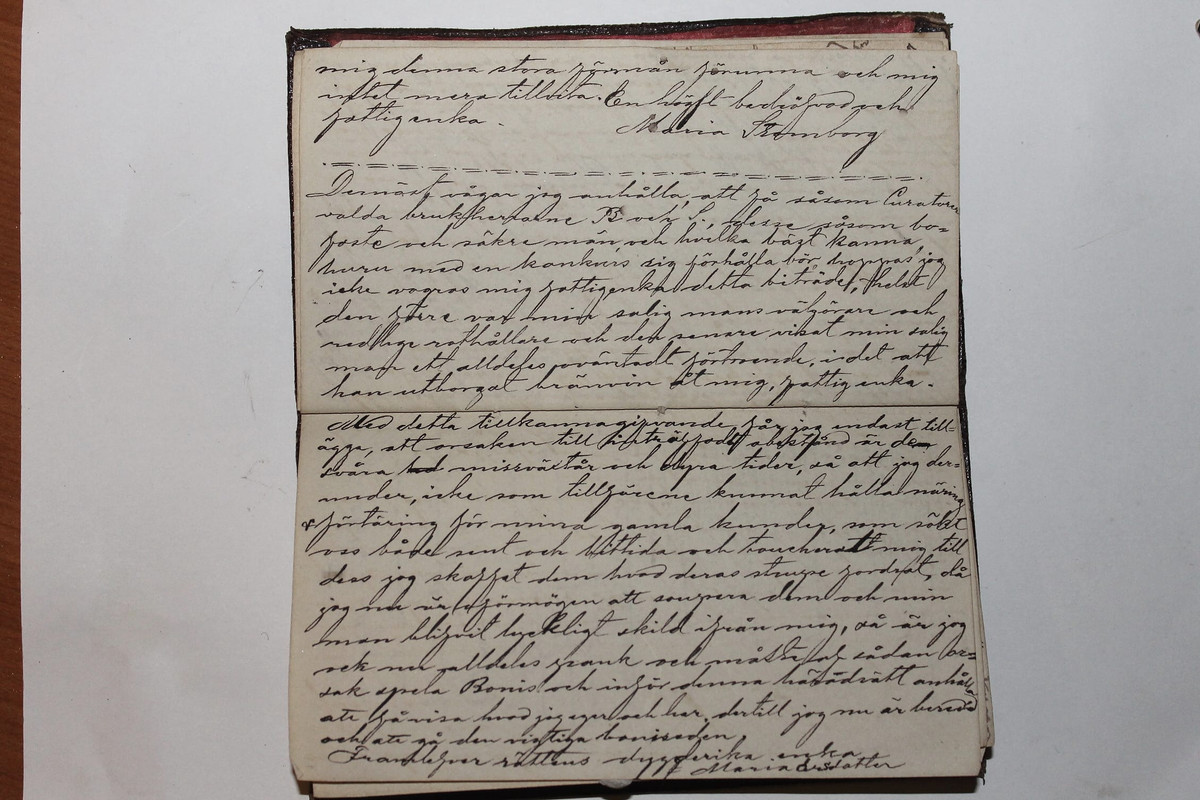 mig denna stora förmån förunna och mig
intet mera tillvita. En högst bedröfvad och
fattig enka.
Maria Stromborg
Dernäst vågar jag anhålla, att få såsom Curatorer
valda brukherrarne B och S., desse såsom bo-
faste och säkre män och hvilka bäst känna
huru med en konkurs sig förhålla bör, hoppas jag
icke vägras mig fattig enka detta biträde, helst
den förre var min salig mans välgörare och
redlige rothållare och den senare visat min salig
man ett alldeles oväntadt förtroende, i det att
han utborgat bränvin åt mig, fattig enka.
Med detta tillkännagifvande får jag endast till-
ägga, att orsaken till inträffadt obestånd är
svåra missväxtår och dyra tider, så att jag der-
under, icke som tillförene kunnat hålla näring
& förtäring för mina gamla kunder, som sökt
oss både sent och bittida och toucherat mig till
dess jag skaffat dem hvad deras strupe fordrat, då
jag nu är oförmögen att soupera dem och min
man blifvit lyckligt skild ifrån mig, så är jag
ock nu alldeles pank och måste af sådan or-
sak spela Bonis och inför denna häradsrätt anhålla
att få visa hvad jag eger och har, dertill jag nu är beredd
och att gå den vigtiga boniseden.
Framlefver rättens dygderika enka
Maria